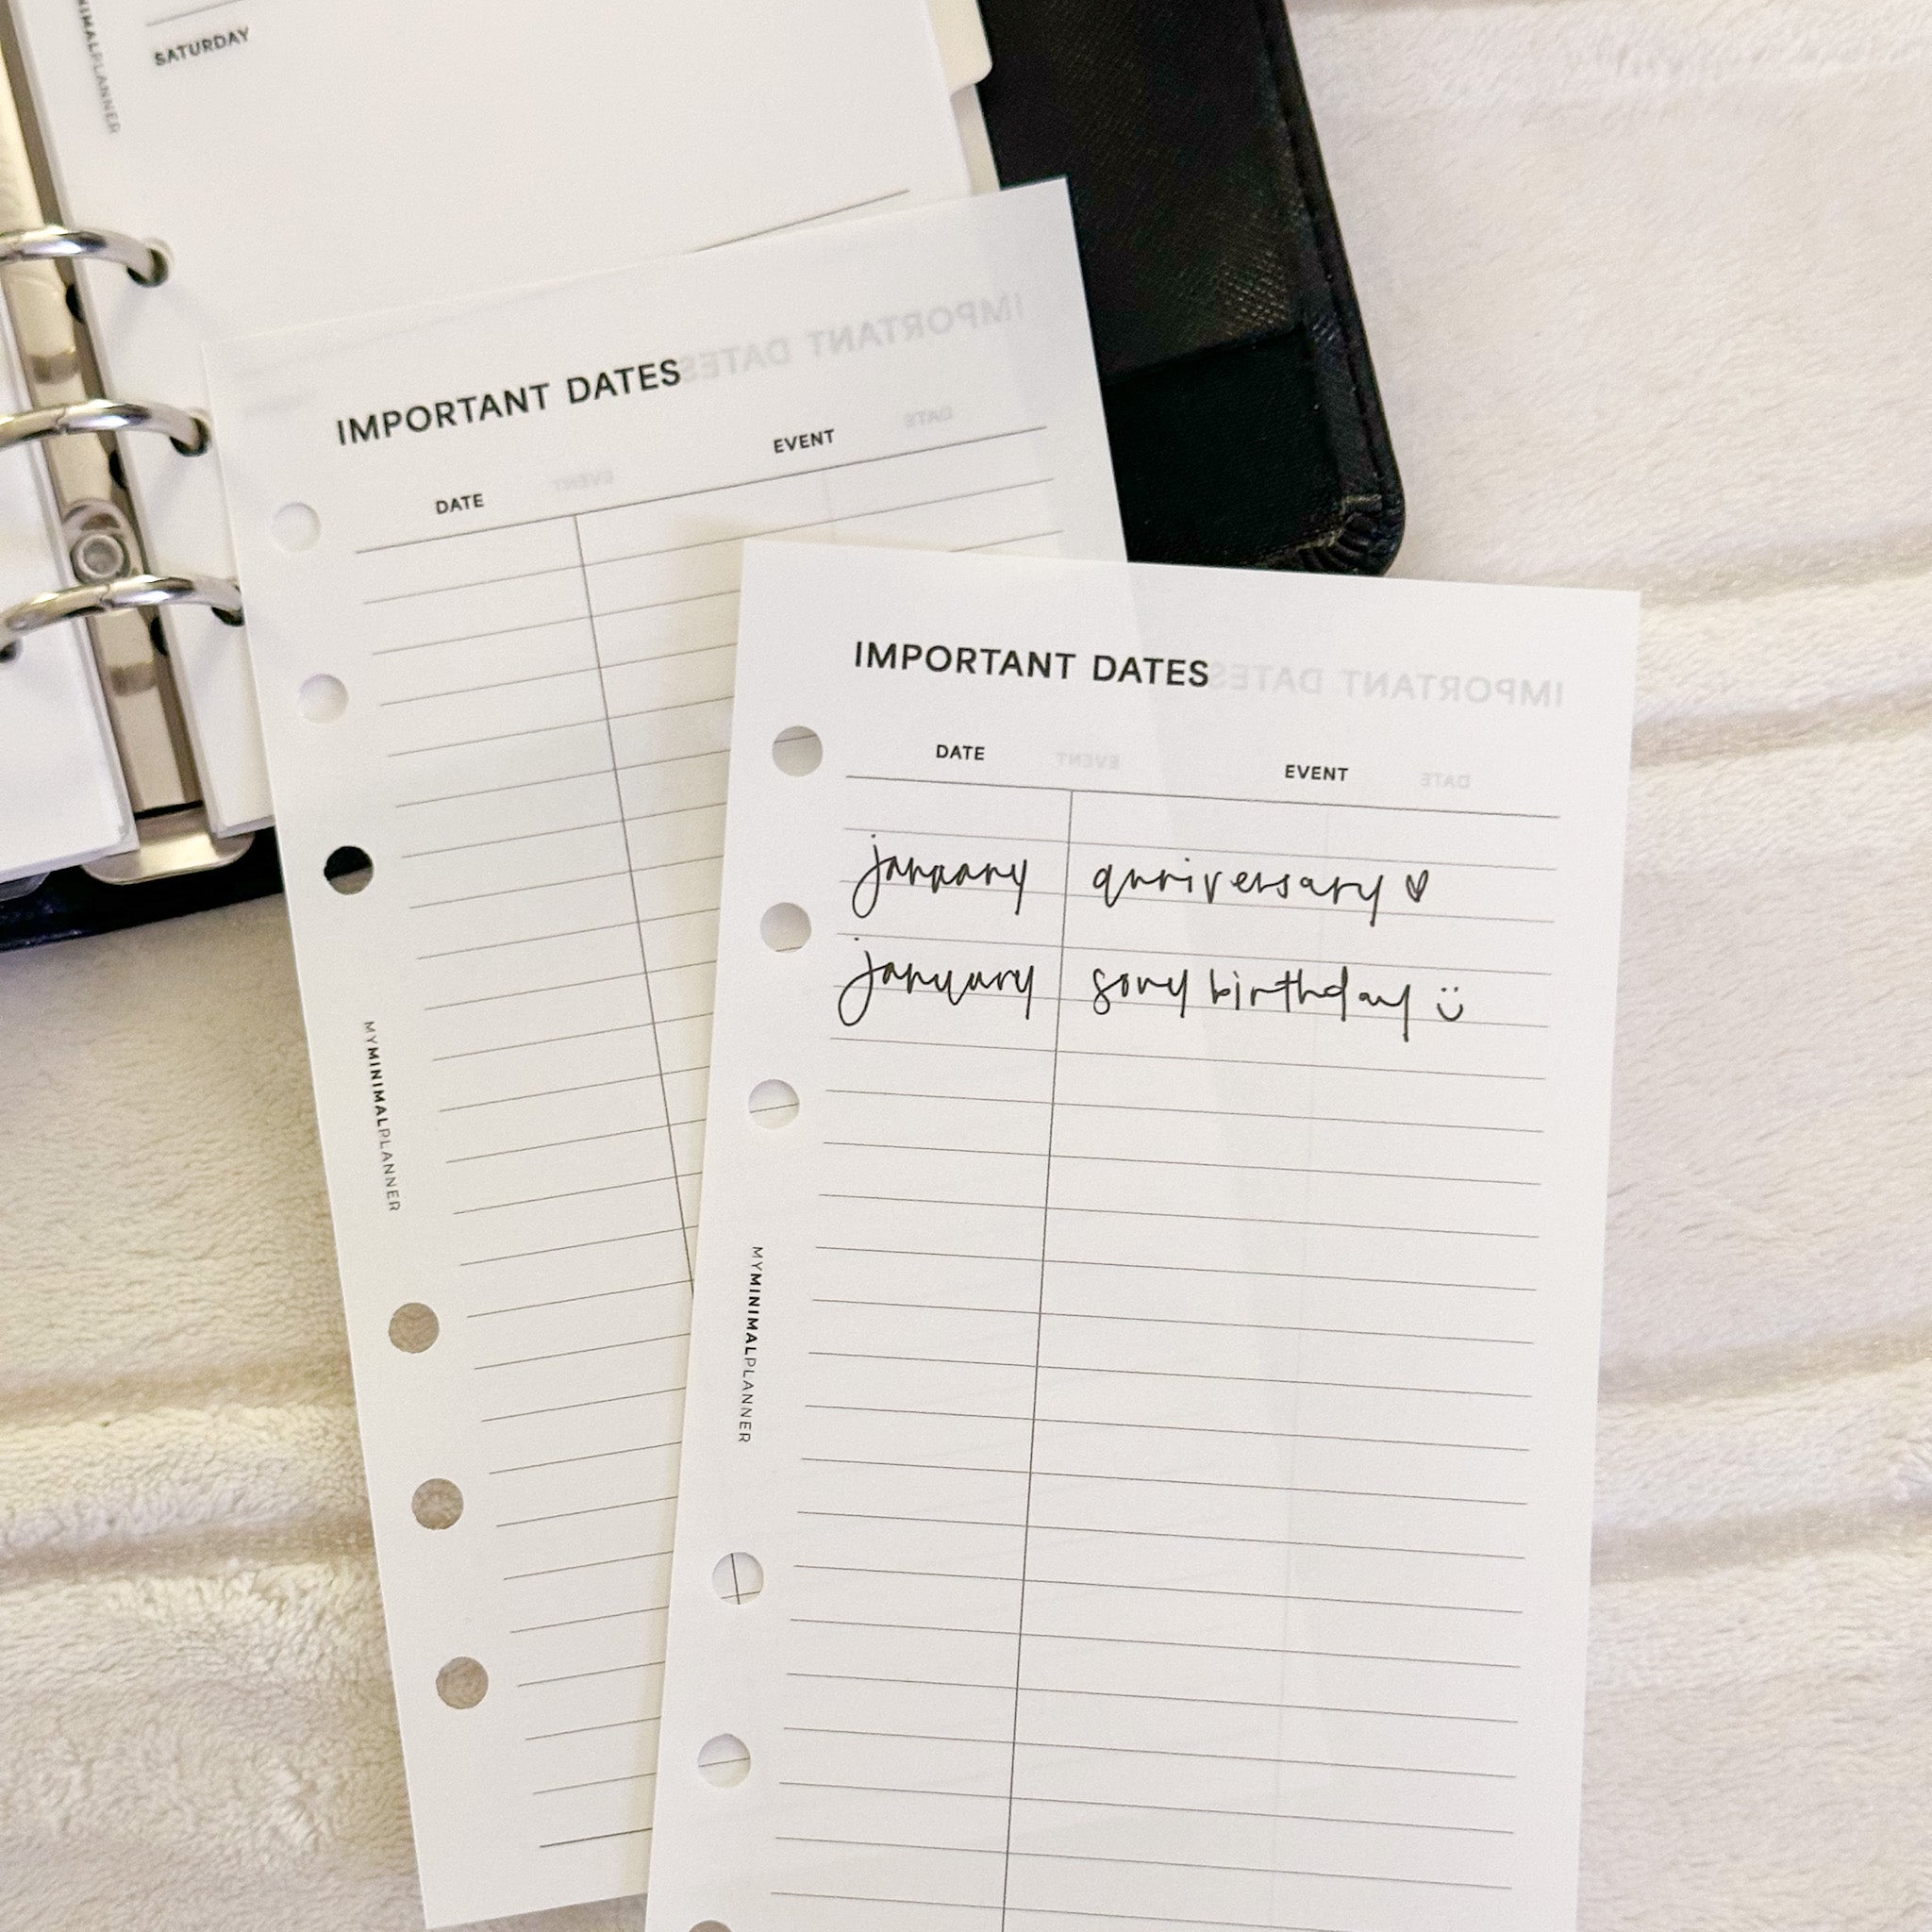 MYMINIMALPLANNER
SATURDAY
IMPORTANT DATES
DATE EVENT
MYMINIMALPLANNER
IMPORTANT DATES
DATE EVENT
january anniversary ♡
january sony birthday ü
MYMINIMALPLANNER